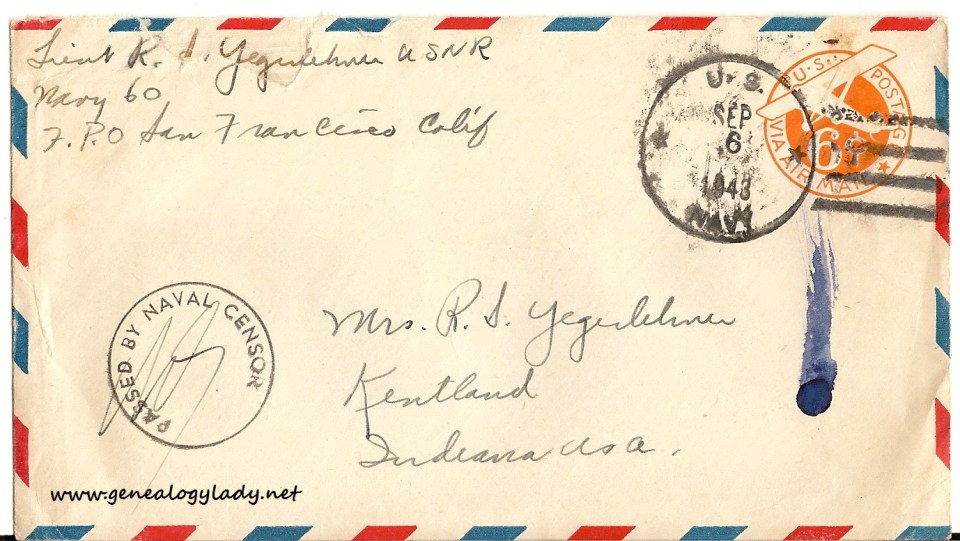 Lieut R. S. Yegerlehner USNR
Navy 60
F.P.O San Francisco Calif
U.S.
SEP
6
1943
NAVY
U.S. POSTAGE
6¢
VIA AIR MAIL
PASSED BY NAVAL CENSOR
Mrs. R. S. Yegerlehner
Kentland
Indiana USA.
www.genealogylady.net